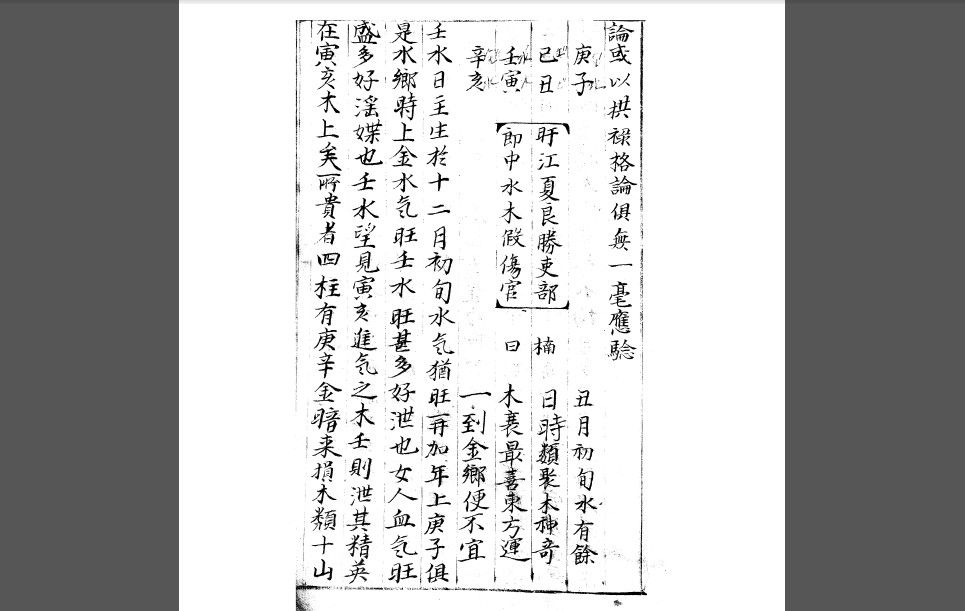 論或以拱祿格論俱無一毫應驗
庚子 丑月初旬水有餘
已丑 盱江夏良勝吏部 楠 日時類聚木神奇
壬寅 郎中水木假傷官 曰 木衰最喜東方運
辛亥 一到金鄉便不宜
壬水日主生於十二月初旬水気猶旺再加年上庚子俱
是水鄉時上金水気旺壬水旺甚多好泄也女人血気旺
盛多好滛媟也壬水望見寅亥進気之木壬則泄其精英
在寅亥木上矣所貴者四柱有庚辛金暗來損木類十山